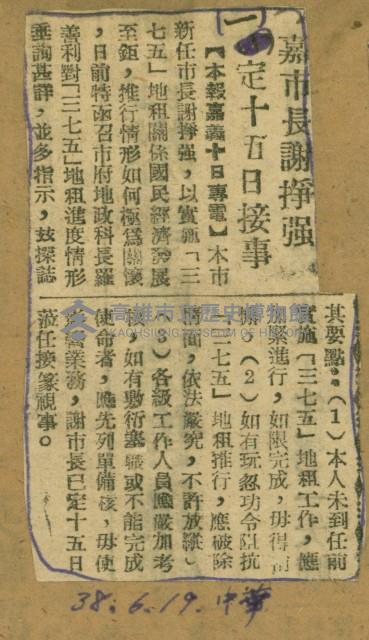 嘉市長謝掙强
定十五日接事
【本報嘉義十日專電】本市
新任市長謝掙强，以實施「三
七五」地租關係國民經濟發展
至鉅，推行情形如何極爲關懷
，日前特函召市府地政科長羅
善利對「三七五」地租進度情形
垂詢甚詳，並多指示，玆探誌
其要點：（1）本人未到任前
實施「三七五」地租工作，應
加緊進行，如限完成，毋得
，（2）如有玩忽功令阻抗
「三七五」地租推行，應破除
情面，依法嚴究，不許放縱
（3）各級工作人員應嚴加考
核，如有敷衍塞職或不能完成
使命者，應先列單備核，毋使
業務，謝市長已定十五日
蒞任接篆視事。
高雄市立歷史博物館
KAOHSIUNG MUSEUM OF HISTORY
38.6.19.中華